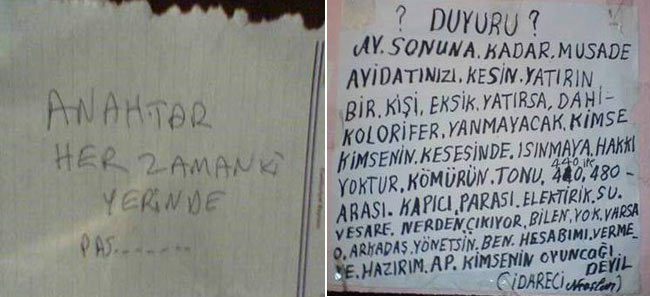 ANAHTAR
HER ZAMANKİ
YERİNDE
PAS.......
? DUYURU ?
AY. SONUNA. KADAR. MUSADE
AYIDATINIZI. KESİN. YATIRIN
BİR. KİŞİ, EKSİK. YATIRSA, DAHİ-
KOLORİFER, YANMAYACAK, KİMSE
KİMSENİN. KESESİNDE. ISINMAYA. HAKKI
440
YOKTUR. KÖMÜRÜN. TONU, 480-
ARASI. KAPICI, PARASI. ELEKTİRİK, SU.
VESARE. NERDEN ÇIKIYOR, BİLEN, YOK. VARSA
O. ARKADAŞ. YÖNETSİN. BEN. HESABIMI. VERME-
E. HAZIRIM. AP. KİMSENİN OYUNCAĞI
DEYİL
(İDARECİ